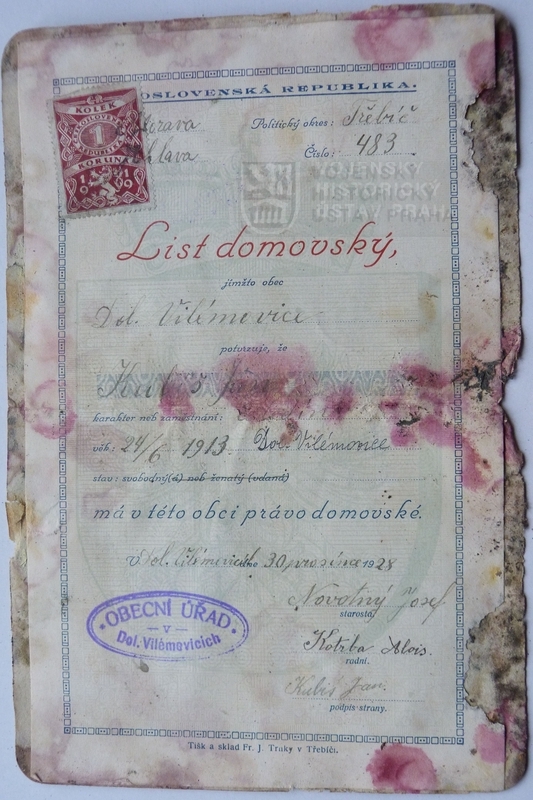 ČR
KOLEK
1
KORUNA
1919
OSLOVENSKÁ REPUBLIKA.
Politický okres: Třebíč
Číslo: 483
VOJENSKÝ
HISTORICKÝ
ÚSTAV PRAHA
List domovský,
jímžto obec
Dol. Vilémovice
potvrzuje, že
Kubiš Jan
karakter neb zaměstnání:
věk: 24/6 1913 Dol. Vilémovice
stav: svobodný(á) neb ženatý (vdaná)
má v této obci právo domovské.
V Dol. Vilémovicích dne 30 prosince 1928
Novotný Josef
starosta
Kotrba Alois.
radní.
OBECNÍ ÚŘAD
- V -
Dol. Vilémovicích
Kubiš Jan.
podpis strany.
Tisk a sklad Fr. J. Trnky v Třebíči.